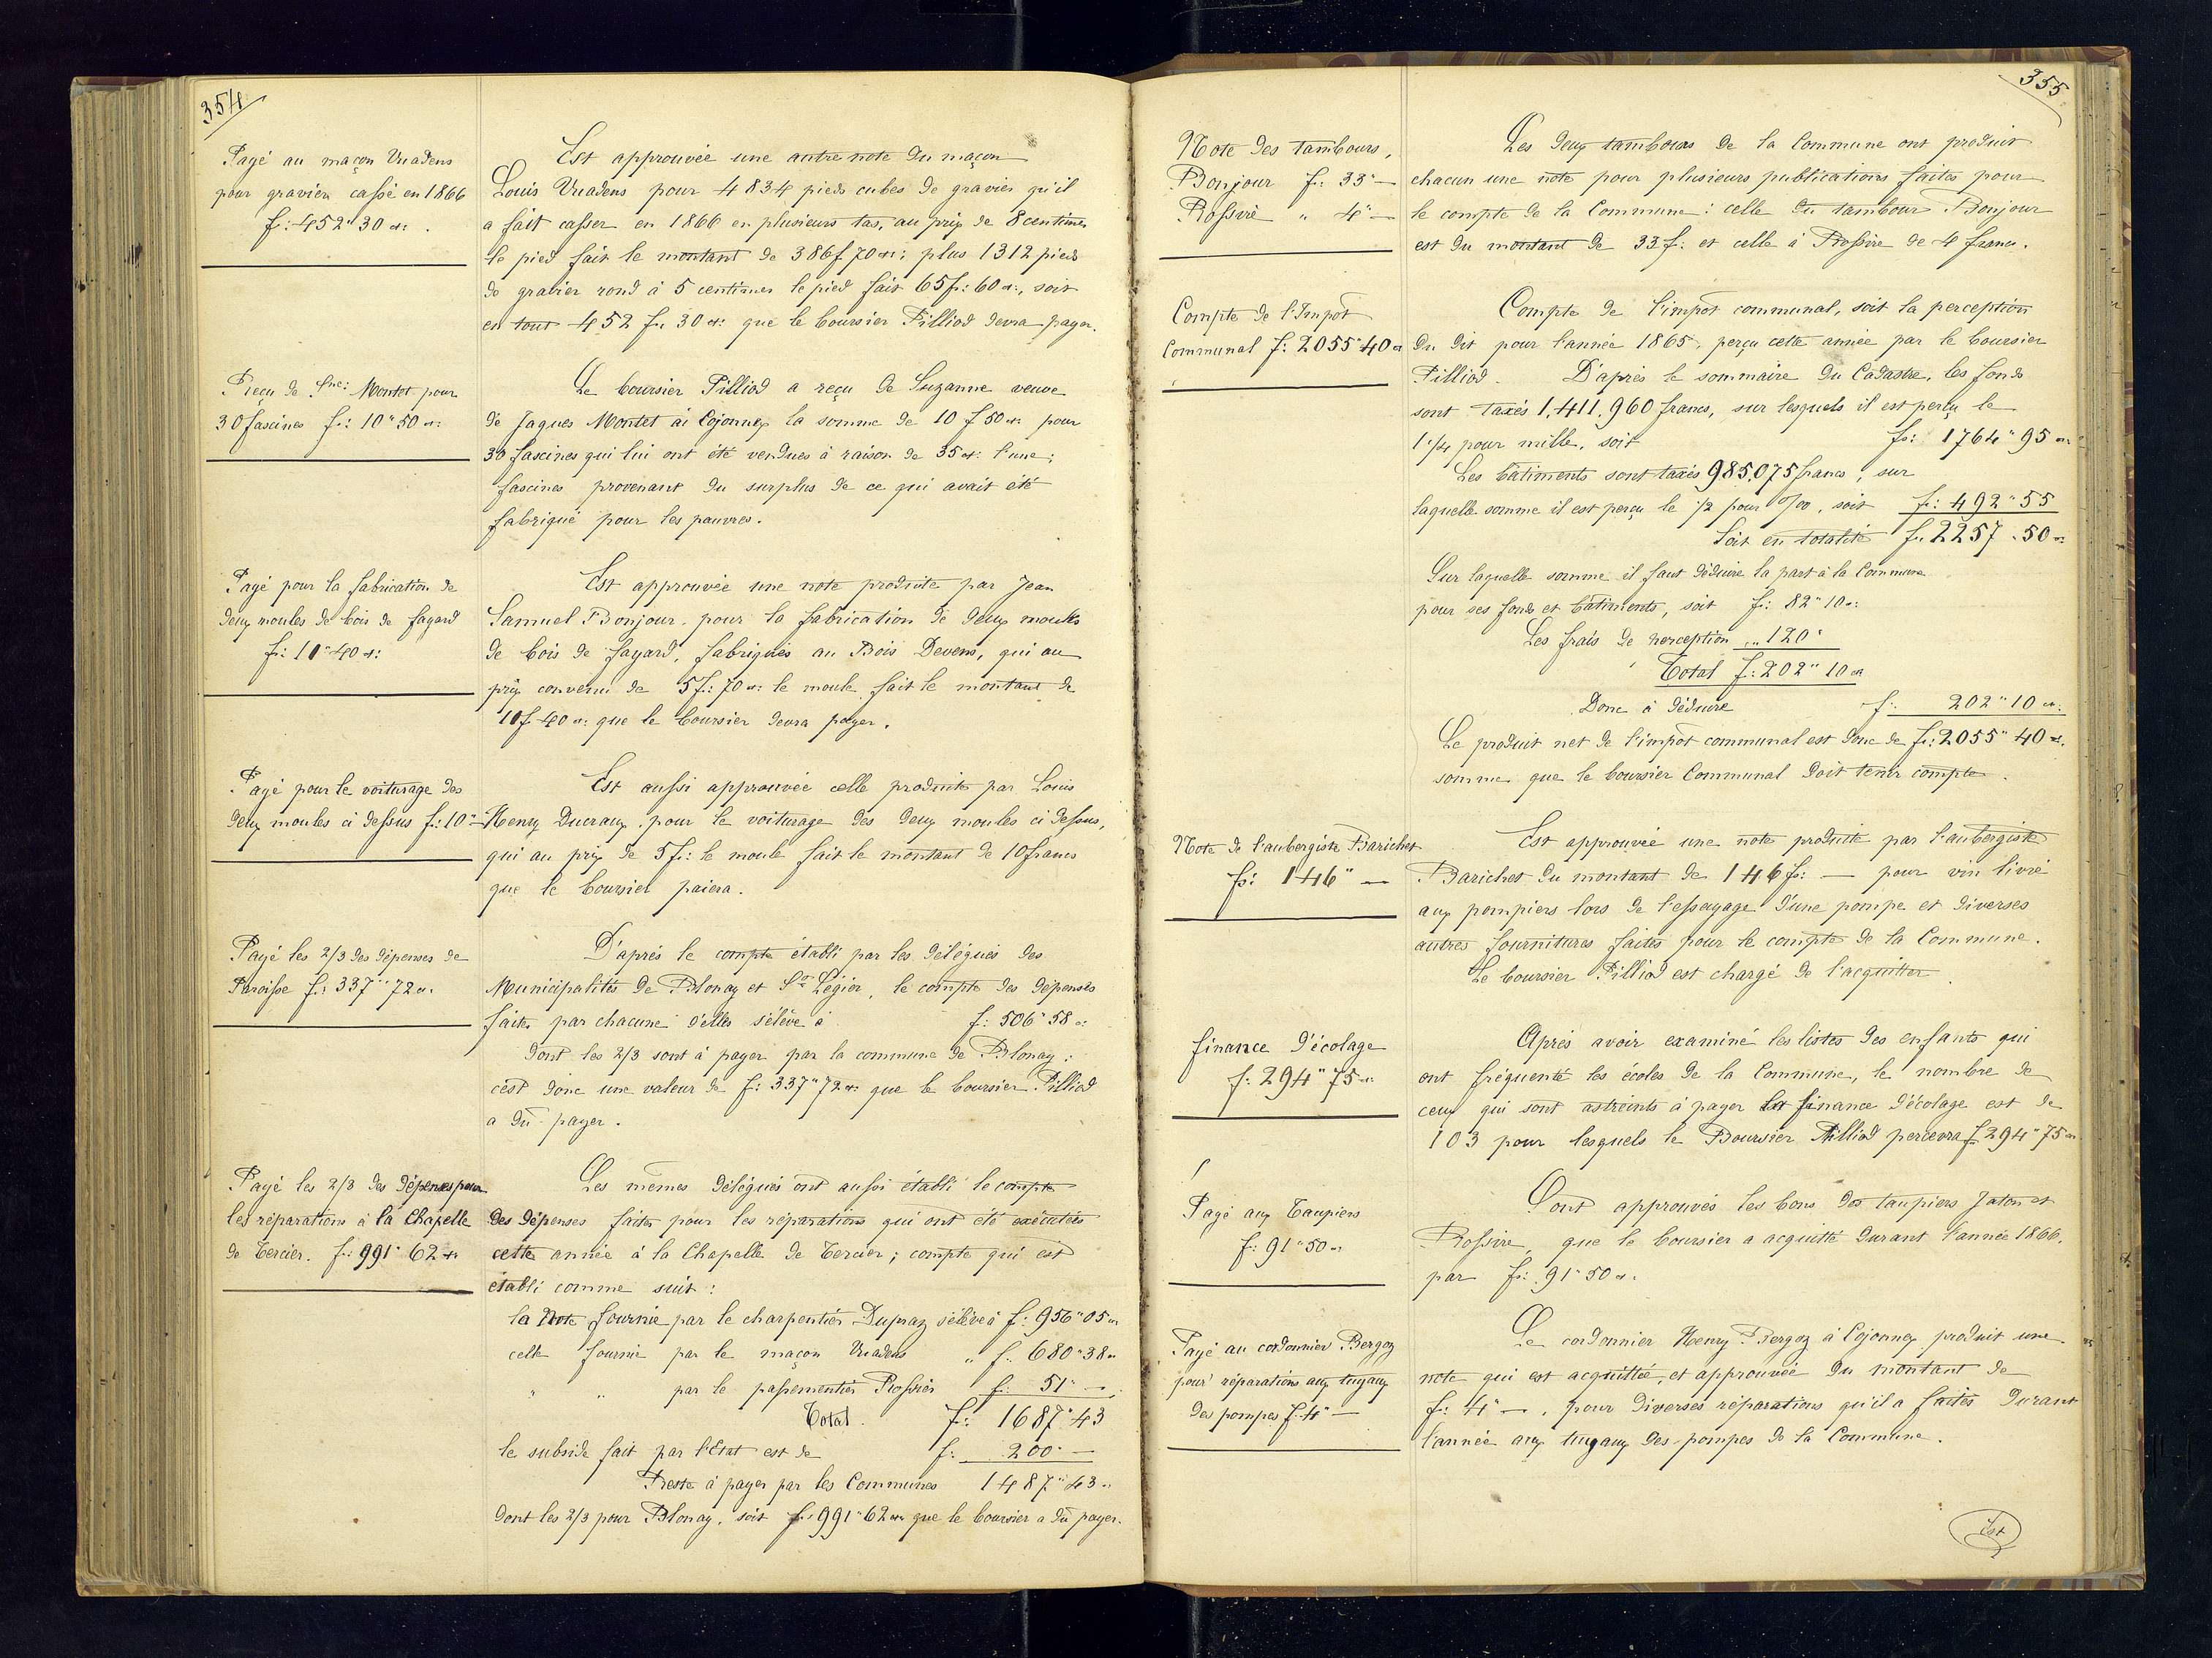 354
Payé au maçon Vuadens
pour gravier cassé en 1866
f: 452" 30 ct:
Est approuvée une autre note du maçon
Louis Vuadens pour 4834 pieds cubes de gravier qu'il
a fait casser en 1866 en plusieurs tas, au prix de 8 centimes
le pied fait le montant de 386f 70 ct: plus 1312 pieds
de gravier rond à 5 centimes le pied fait 65 fr: 60 ct:, soit
en tout 452 fr 30 ct: que le boursier Pilliod devra payer.
Reçu de Sne: Montet pour
30 fascines fr: 10" 50 ct:
Le boursier Pilliod a reçu de Suzanne veuve
de Jaques Montet à Cojonnex la somme de 10 f 50 ct: pour
30 fascines qui lui ont été vendues à raison de 35 ct: l'une;
fascines provenant du surplus de ce qui avait été
fabriqué pour les pauvres.
Payé pour la fabrication de
deux moules de bois de fayard
fr: 11" 40 ct:
Est approuvée une note produite par Jean
Samuel Bonjour, pour la fabrication de deux moules
de bois de fayard, fabriqués au Bois Devens, qui au
prix convenu de 5 fr: 70 ct: le moule fait le montant de
11 f 40 ct: que le boursier devra payer.
Payé pour le voiturage des
deux moules ci dessus fr: 10" —
Est aussi approuvée celle produite par Louis
Henry Ducraux, pour le voiturage des deux moules ci dessus,
qui au prix de 5 fr: le moule fait le montant de 10 francs
que le boursier paiera.
Payé les 2/3 des dépenses de
Paroisse fr: 337" 72 ct.
D'après le compte établi par les délégués des
Municipalités de Blonay et St Légier, le compte des dépenses
faites par chacune d'elles s'élève à f: 506" 58 ct:
dont les 2/3 sont à payer par la commune de Blonay;
c'est donc une valeur de f: 337" 72 ct: que le boursier Pilliod
a dû payer.
Payé les 2/3 des dépenses pour
les réparations à la Chapelle
de Tercier. fr: 991" 62 ct
Les mêmes délégués ont aussi établi le compte
des dépenses faites pour les réparations qui ont été exécutées
cette année à la Chapelle de Tercier; compte qui est
établi comme suit:
la Note fournie par le charpentier Dupraz s'élève à f: 956" 05 ct
celle fournie par le maçon Vuadens " f: 680" 38 ct
" " par le passementier Rossier f: 51" —
Total. f: 1687" 43
le subside fait par l'Etat est de f: 200" —
Reste à payer par les Communes 1487" 43 ct
dont les 2/3 pour Blonay, soit fr: 991" 62 ct que le boursier a dû payer.
355
Note des tambours,
Bonjour f: 33" —
Rossire " 4" —
Les deux tambours de la Commune ont produit
chacun une note pour plusieurs publications faites pour
le compte de la Commune: celle du tambour Bonjour
est du montant de 33 f: et celle à Rossire de 4 francs.
Compte de l'Impôt
Communal f: 2055" 40 ct
Compte de l'impôt communal, soit la perception
du dit pour l'année 1865, perçu cette année par le boursier
Pilliod. D'après le sommaire du Cadastre, les fonds
sont taxés 1,411,960 francs, sur lesquels il est perçu le
1 1/4 pour mille, soit fr: 1764" 95 ct:
Les bâtiments sont taxés 985,075 francs, sur
laquelle somme il est perçu le 1/2 pour 0/00, soit fr: 492" 55
Soit en totalité fr. 2257" 50 ct
Sur laquelle somme il faut déduire la part à la Commune
pour ses fonds et bâtiments, soit fr: 82" 10 ct:
Les frais de perception " 120"
Total f: 202" 10 ct
Donc à déduire f: 202" 10 ct:
Le produit net de l'impôt communal est donc de fr: 2055" 40 ct.
somme que le boursier Communal doit tenir compte.
Note de l'aubergiste Barichet
fr: 146" —
Est approuvée une note produite par l'aubergiste
Barichet du montant de 146 fr: — pour vin livré
aux pompiers lors de l'essayage d'une pompe et diverses
autres fournitures faites pour le compte de la Commune.
Le boursier Pilliod est chargé de l'acquitter.
finance d'écolage
f: 294" 75 ct:
Après avoir examiné les listes des enfants qui
ont fréquenté les écoles de la Commune, le nombre de
ceux qui sont astreints à payer la finance d'écolage est de
103 pour lesquels le Boursier Pilliod percevra f 294" 75 ct
Payé aux Taupiers
f: 91" 50 ct
Sont approuvés les bons des taupiers Jaton et
Rossire, que le boursier a acquitté durant l'année 1866.
par fr: 91" 50 ct.
Payé au cordonnier Bergoz
pour réparations aux tuyaux
des pompes f: 4" —
Le cordonnier Henry Bergoz à Cojonnex produit une
note qui est acquittée, et approuvée du montant de
f: 4" —, pour diverses réparations qu'il a faites durant
l'année aux tuyaux des pompes de la Commune.
Est